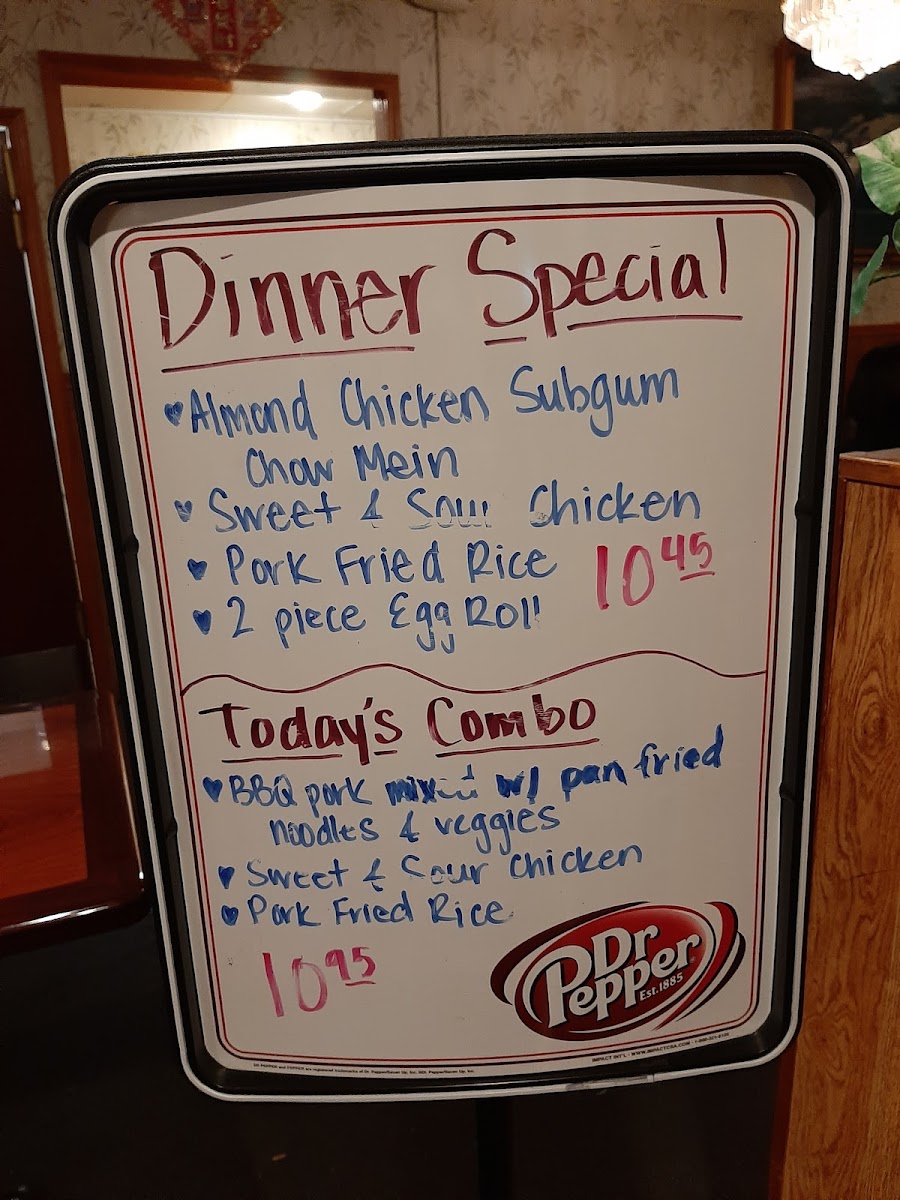 Dinner Special
Almond Chicken Subgum
Chow Mein
Sweet & Sour Chicken
Pork Fried Rice
10.45
2 piece Egg Roll
Today's Combo
BBQ pork mixed w/ pan fried
noodles & veggies
Sweet & Sour Chicken
Pork Fried Rice
10.95
Dr
Pepper
Est.1885